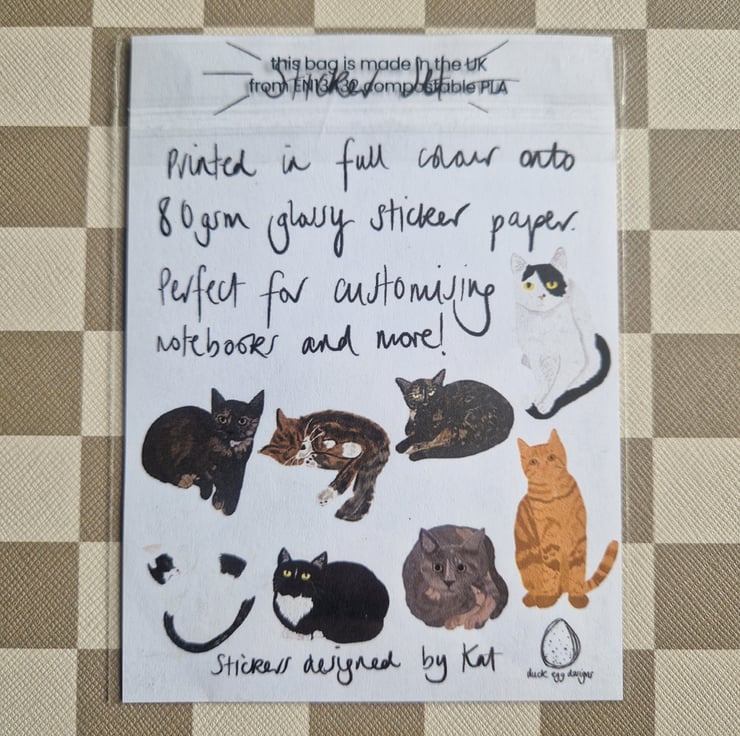 this bag is made in the UK
from EN13432 compostable PLA
Sticker Set
Printed in full colour onto
80gsm glossy sticker paper.
Perfect for customising
notebooks and more!
Stickers designed by Kat
duck egg designs